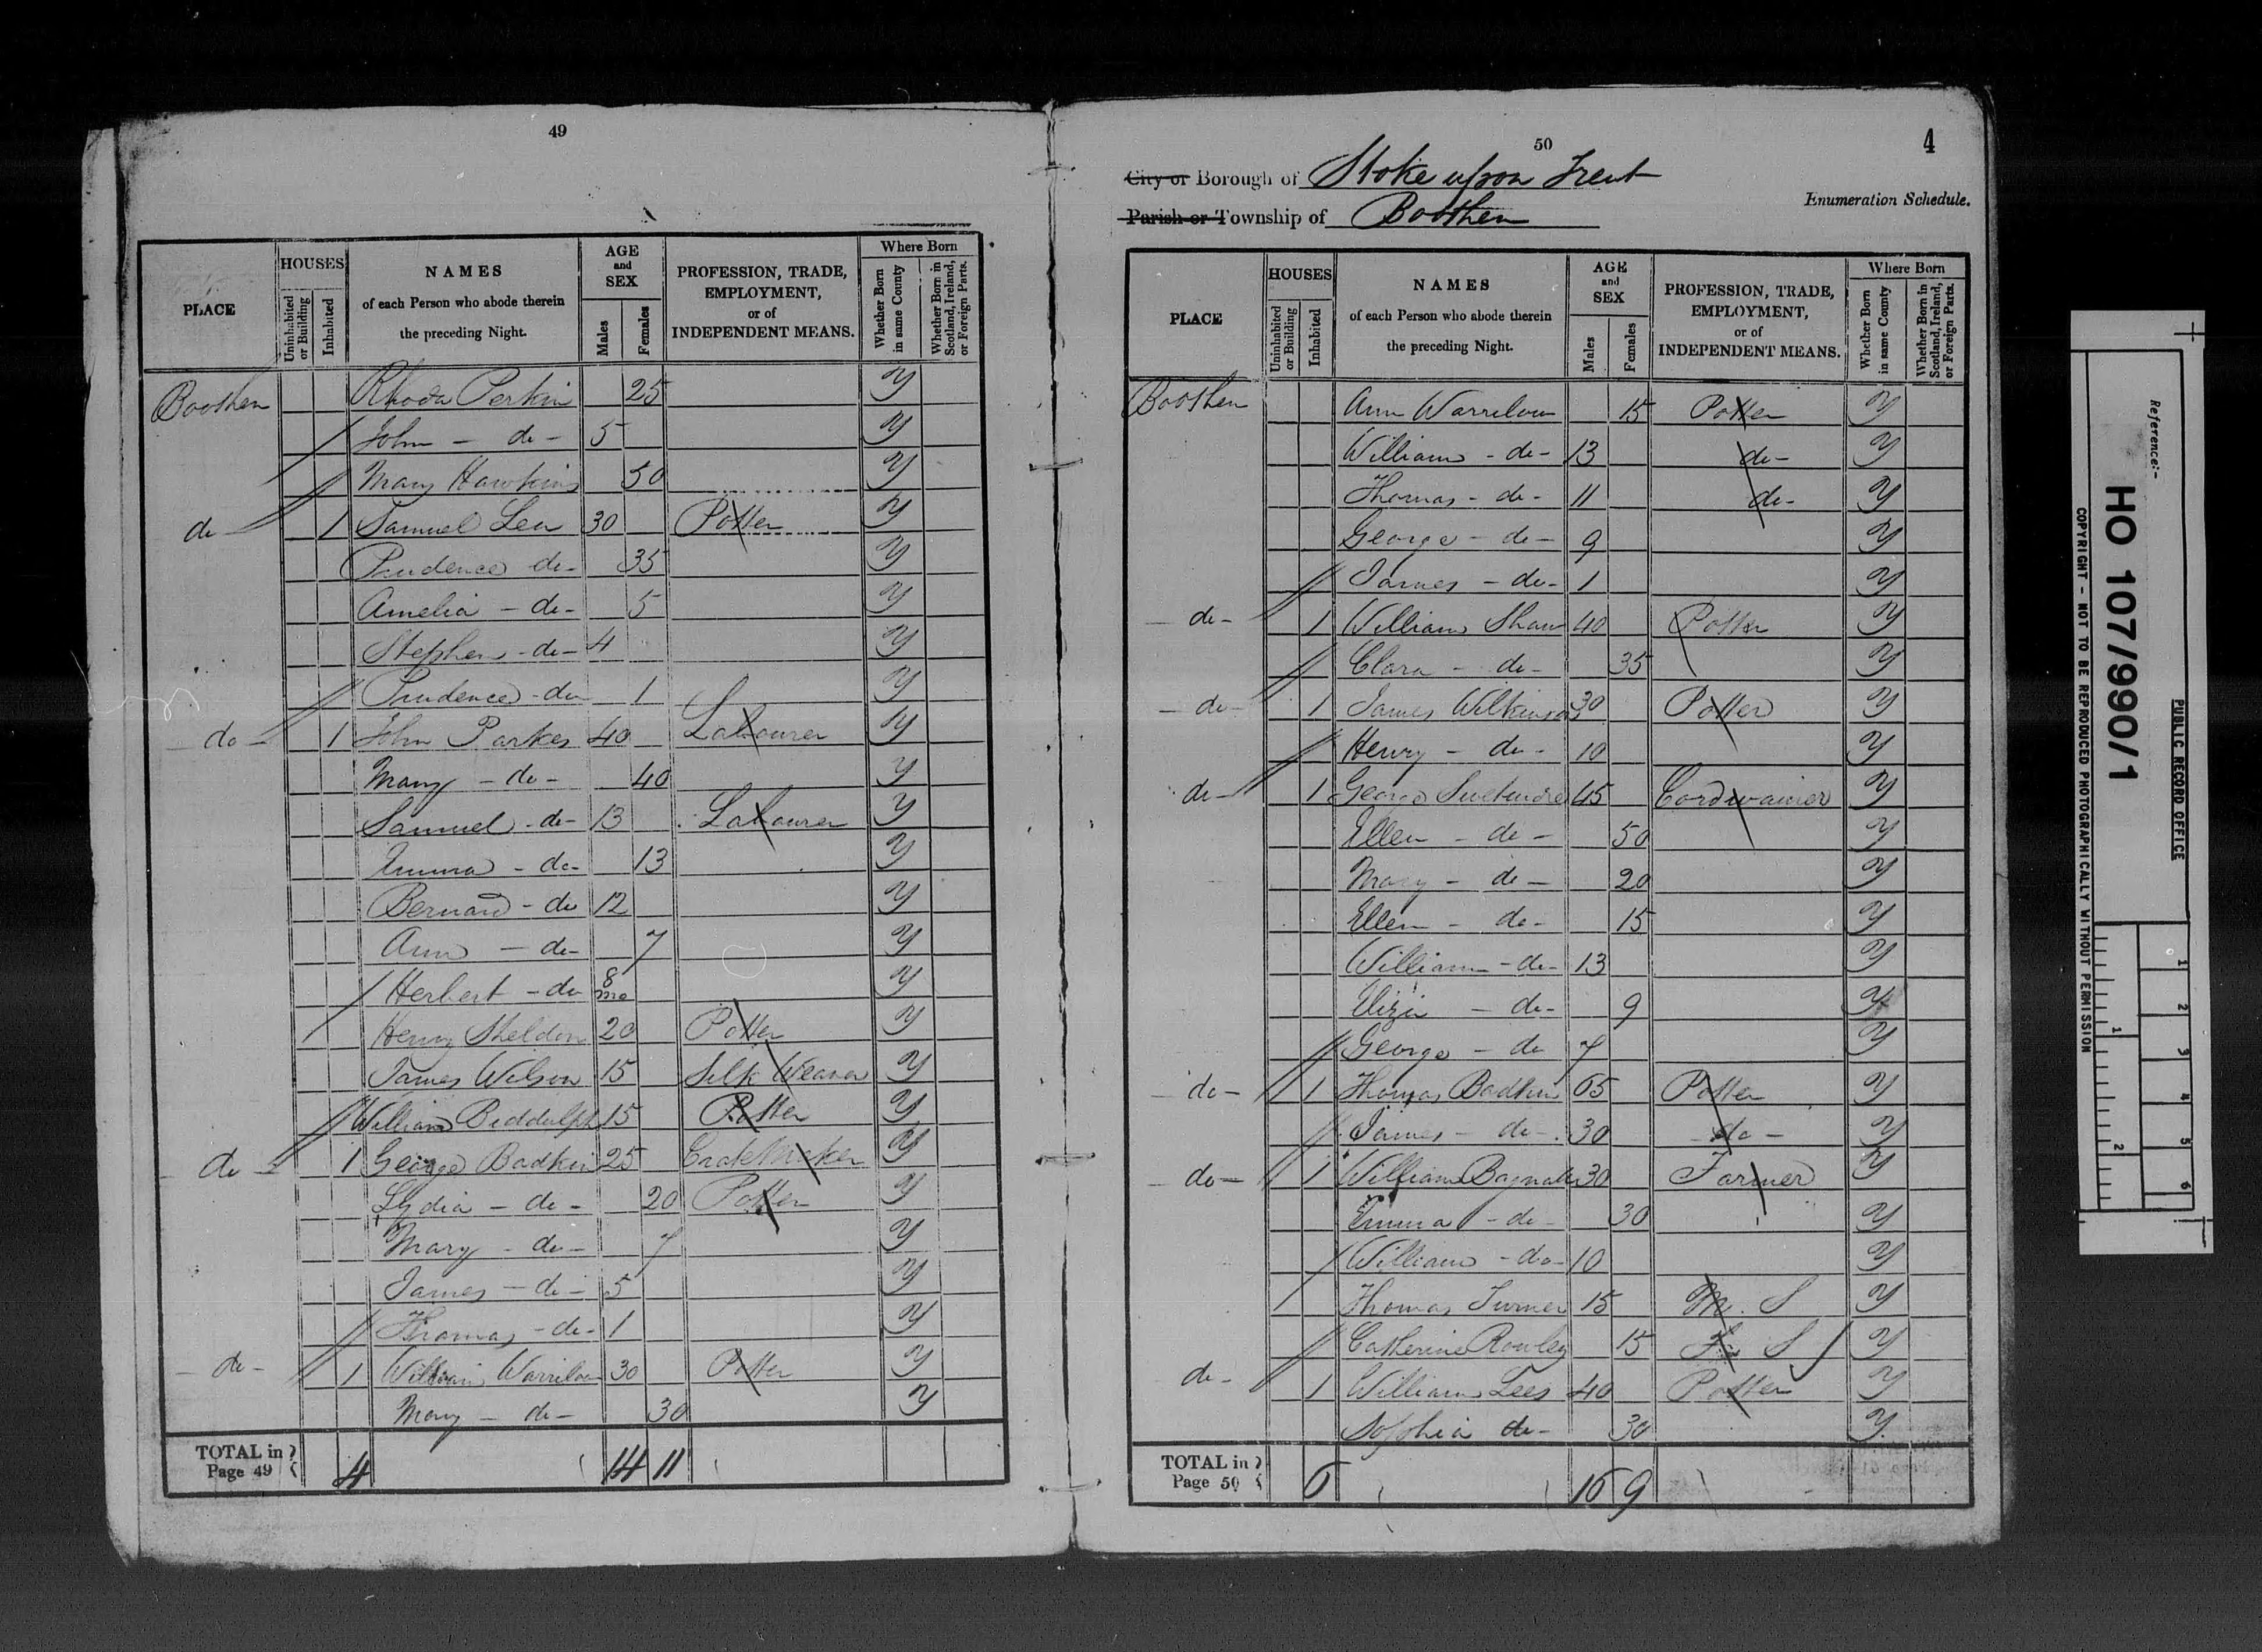 49
PLACE
HOUSES
Uninhabited or Building
Inhabited
NAMES
of each Person who abode therein
the preceding Night.
AGE
and
SEX
Males
Females
PROFESSION, TRADE,
EMPLOYMENT,
or of
INDEPENDENT MEANS.
Where Born
Whether Born in same County
Whether Born in Scotland, Ireland, or Foreign Parts.
Boothen Rhoda Perkin 25 Y
John - do - 5 Y
Mary Hawkins 50 Y
do 1 Samuel Lea 30 Potter Y
Prudence do - 35 Y
Amelia - do - 5 Y
Stephen - do - 4 Y
Prudence - do 1 Y
do - 1 John Parkes 40 Labourer Y
Mary - do - 40 Y
Samuel - do - 13 Labourer Y
Emma - do - 13 Y
Bernard - do 12 Y
Ann - do - 7 Y
Herbert - do 8 mo Y
Henry Sheldon 20 Potter Y
James Wilson 15 Silk Weaver Y
William Biddulph 15 Potter Y
do - 1 George Badkin 25 Crate Maker Y
Lydia - do - 20 Potter Y
Mary - do - 7 Y
James - do - 5 Y
Thomas - do - 1 Y
do - 1 William Warrilow 30 Potter Y
Mary - do - 30 Y
TOTAL in Page 49 4 14 11
50
4
City or Borough of Stoke upon Trent
Enumeration Schedule.
Parish or Township of Boothen
PLACE
HOUSES
Uninhabited or Building
Inhabited
NAMES
of each Person who abode therein
the preceding Night.
AGE
and
SEX
Males
Females
PROFESSION, TRADE,
EMPLOYMENT,
or of
INDEPENDENT MEANS.
Where Born
Whether Born in same County
Whether Born in Scotland, Ireland, or Foreign Parts.
Boothen Ann Warrilow 15 Potter Y
William - do - 13 do - Y
Thomas - do - 11 do - Y
George - do - 9 Y
James - do - 1 Y
do - 1 William Shaw 40 Potter Y
Clara - do - 35 Y
- do - 1 James Wilkinson 30 Potter Y
Henry - do - 10 Y
do - 1 George 45 Cordwainer Y
Ellen - do - 50 Y
Mary - do - 20 Y
Ellen - do - 15 Y
William - do - 13 Y
Eliza - do - 9 Y
George - do 7 Y
- do - 1 Thomas Badkin 65 Potter Y
James - do - 30 - do - Y
- do - 1 William 30 Farmer Y
Emma - do - 30 Y
William - do - 10 Y
Thomas Turner 15 M. S Y
Catherine Rowley 15 S Y
do - 1 William Lees 40 Potter Y
Sophia do - 30 Y
TOTAL in Page 50 6 16 9
Reference:-
HO 107/990/1
PUBLIC RECORD OFFICE
COPYRIGHT - NOT TO BE REPRODUCED PHOTOGRAPHICALLY WITHOUT PERMISSION
1 2 3 4 5 6
1 2